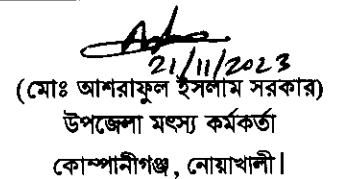 21/11/2023
(মোঃ আশরাফুল ইসলাম সরকার)
উপজেলা মৎস্য কর্মকর্তা
কোম্পানীগঞ্জ, নোয়াখালী|